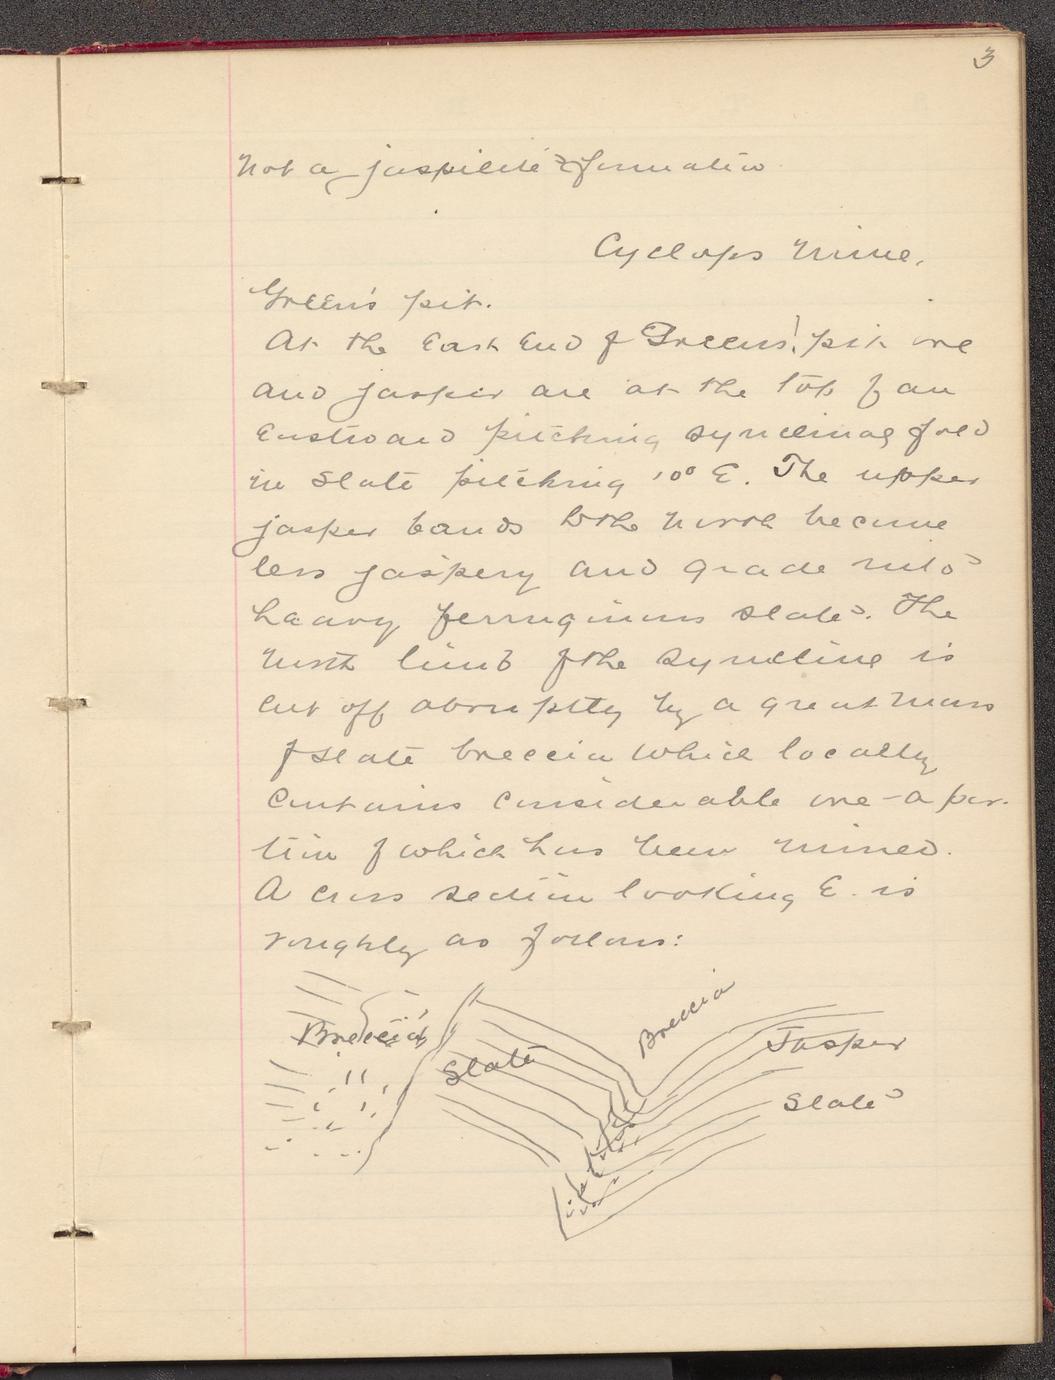 3
Not a jaspilite formation
Cyclops Mine.
Green's pit.
At the East End of Greens' pit ore
and jasper are at the top of an
Eastward pitching synclinal fold
in slate pitching 10° E. The upper
jasper bands to the north become
less jaspery and grade into
heavy ferruginous slate. The
north limb of the syncline is
cut off abruptly by a great mass
of slate breccia which locally
contains considerable ore - a por-
tion of which has been mined.
A cross section looking E. is
roughly as follows:
Breccia
Slate
Breccia
Jasper
Slate